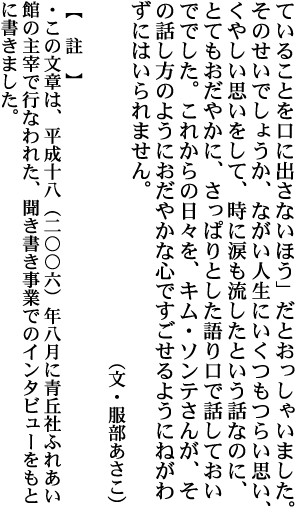 ていることを口に出さないほう」だとおっしゃいました。
そのせいでしょうか、ながい人生にいくつもつらい思い、
くやしい思いをして、時に涙も流したという話なのに、
とてもおだやかに、さっぱりとした語り口で話しておい
ででした。これからの日々を、キム・ソンテさんが、そ
の話し方のようにおだやかな心ですごせるようにねがわ
ずにはいられません。
（文・服部あさこ）
【　註　】
・この文章は、平成十八（二〇〇六）年八月に青丘社ふれあい
館の主宰で行なわれた、聞き書き事業でのインタビューをもと
に書きました。